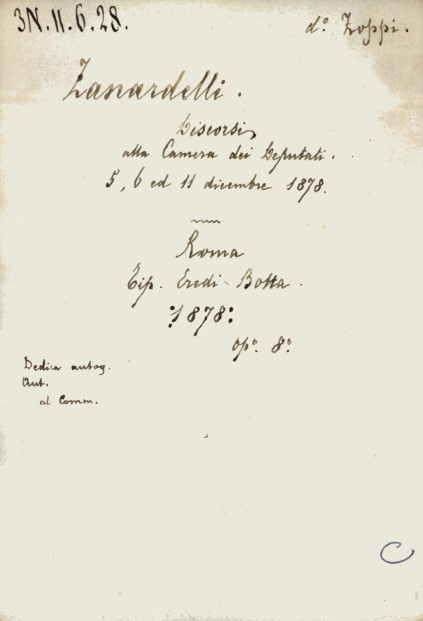 3N.11.6.28.
d.º Zoppi.
Zanardelli.
Discorsi
alla Camera dei Deputati.
5, 6 ed 11 dicembre 1878.
Roma
Tip. Eredi Botta.
1878:
op.º 8.º
Dedica autog.
Aut.
al Comm.
C